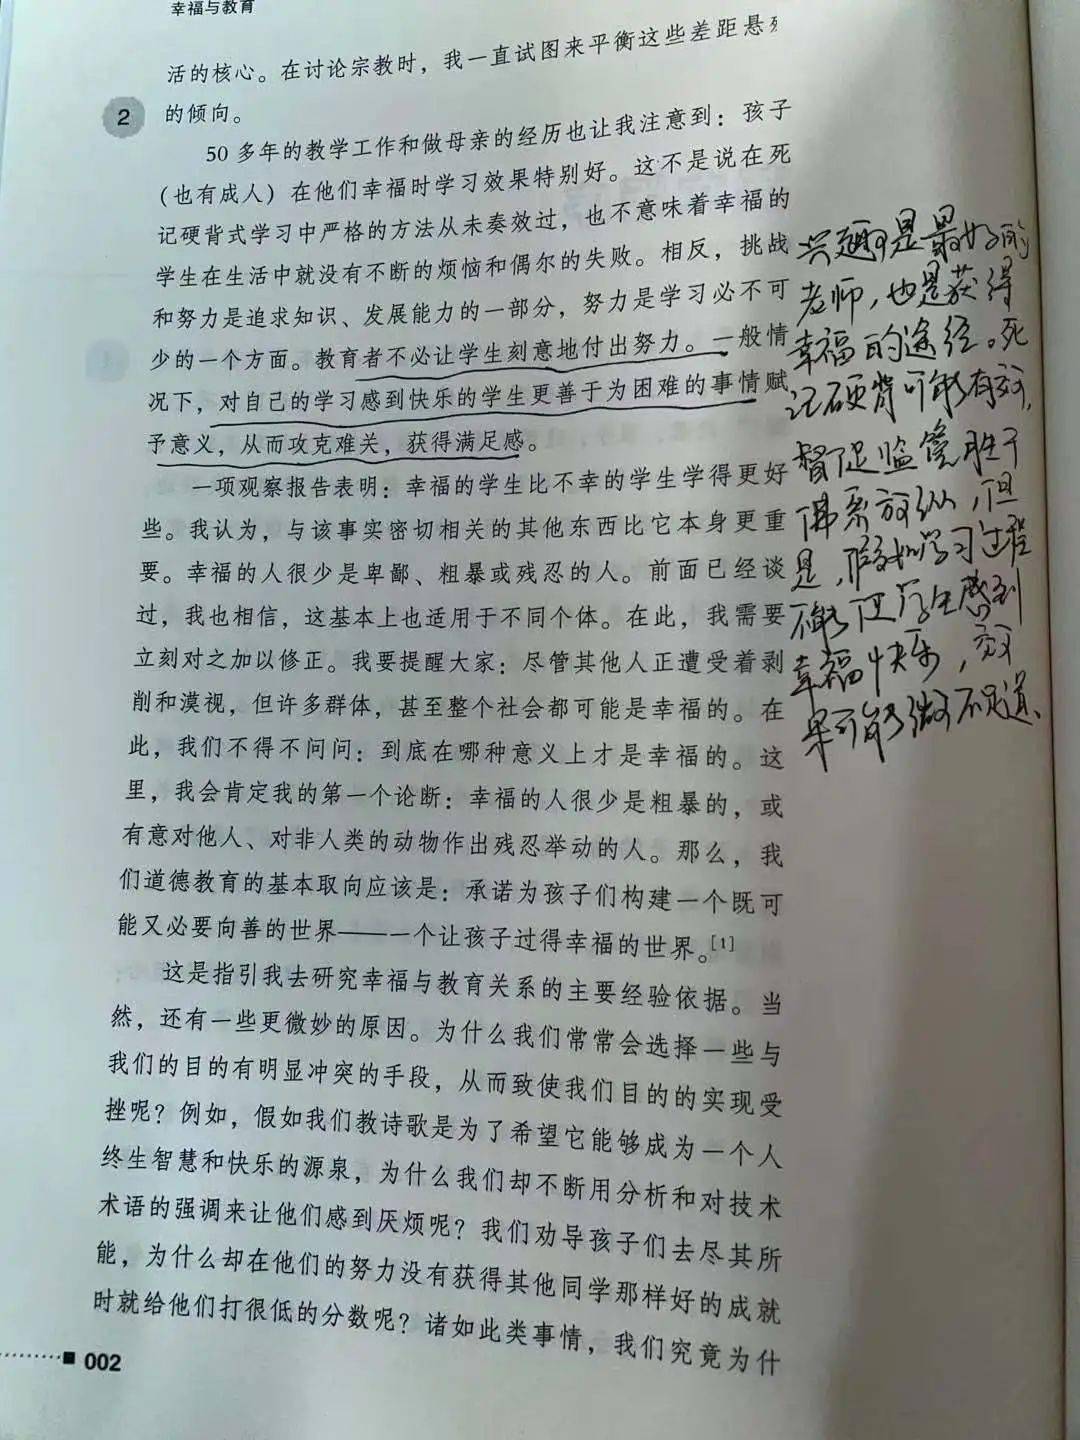 幸福与教育
活的核心。在讨论宗教时，我一直试图来平衡这些差距悬殊
的倾向。
2
50 多年的教学工作和做母亲的经历也让我注意到：孩子
（也有成人）在他们幸福时学习效果特别好。这不是说在死
记硬背式学习中严格的方法从未奏效过，也不意味着幸福的
学生在生活中就没有不断的烦恼和偶尔的失败。相反，挑战
和努力是追求知识、发展能力的一部分，努力是学习必不可
少的一个方面。教育者不必让学生刻意地付出努力。一般情
况下，对自己的学习感到快乐的学生更善于为困难的事情赋
予意义，从而攻克难关，获得满足感。
一项观察报告表明：幸福的学生比不幸的学生学得更好
些。我认为，与该事实密切相关的其他东西比它本身更重
要。幸福的人很少是卑鄙、粗暴或残忍的人。前面已经谈
过，我也相信，这基本上也适用于不同个体。在此，我需要
立刻对之加以修正。我要提醒大家：尽管其他人正遭受着剥
削和漠视，但许多群体，甚至整个社会都可能是幸福的。在
此，我们不得不问问：到底在哪种意义上才是幸福的。这
里，我会肯定我的第一个论断：幸福的人很少是粗暴的，或
有意对他人、对非人类的动物作出残忍举动的人。那么，我
们道德教育的基本取向应该是：承诺为孩子们构建一个既可
能又必要向善的世界——一个让孩子过得幸福的世界。[1]
这是指引我去研究幸福与教育关系的主要经验依据。当
然，还有一些更微妙的原因。为什么我们常常会选择一些与
我们的目的有明显冲突的手段，从而致使我们目的的实现受
挫呢？例如，假如我们教诗歌是为了希望它能够成为一个人
终生智慧和快乐的源泉，为什么我们却不断用分析和对技术
术语的强调来让他们感到厌烦呢？我们劝导孩子们去尽其所
能，为什么却在他们的努力没有获得其他同学那样好的成就
时就给他们打很低的分数呢？诸如此类事情，我们究竟为什
002
兴趣是最好的
老师，也是获得
幸福的途径。死
记硬背可能有效，
督促监管胜于
佛系放纵，但
是，假如学习过程
不能让学生感到
幸福快乐，效
果可能微不足道。